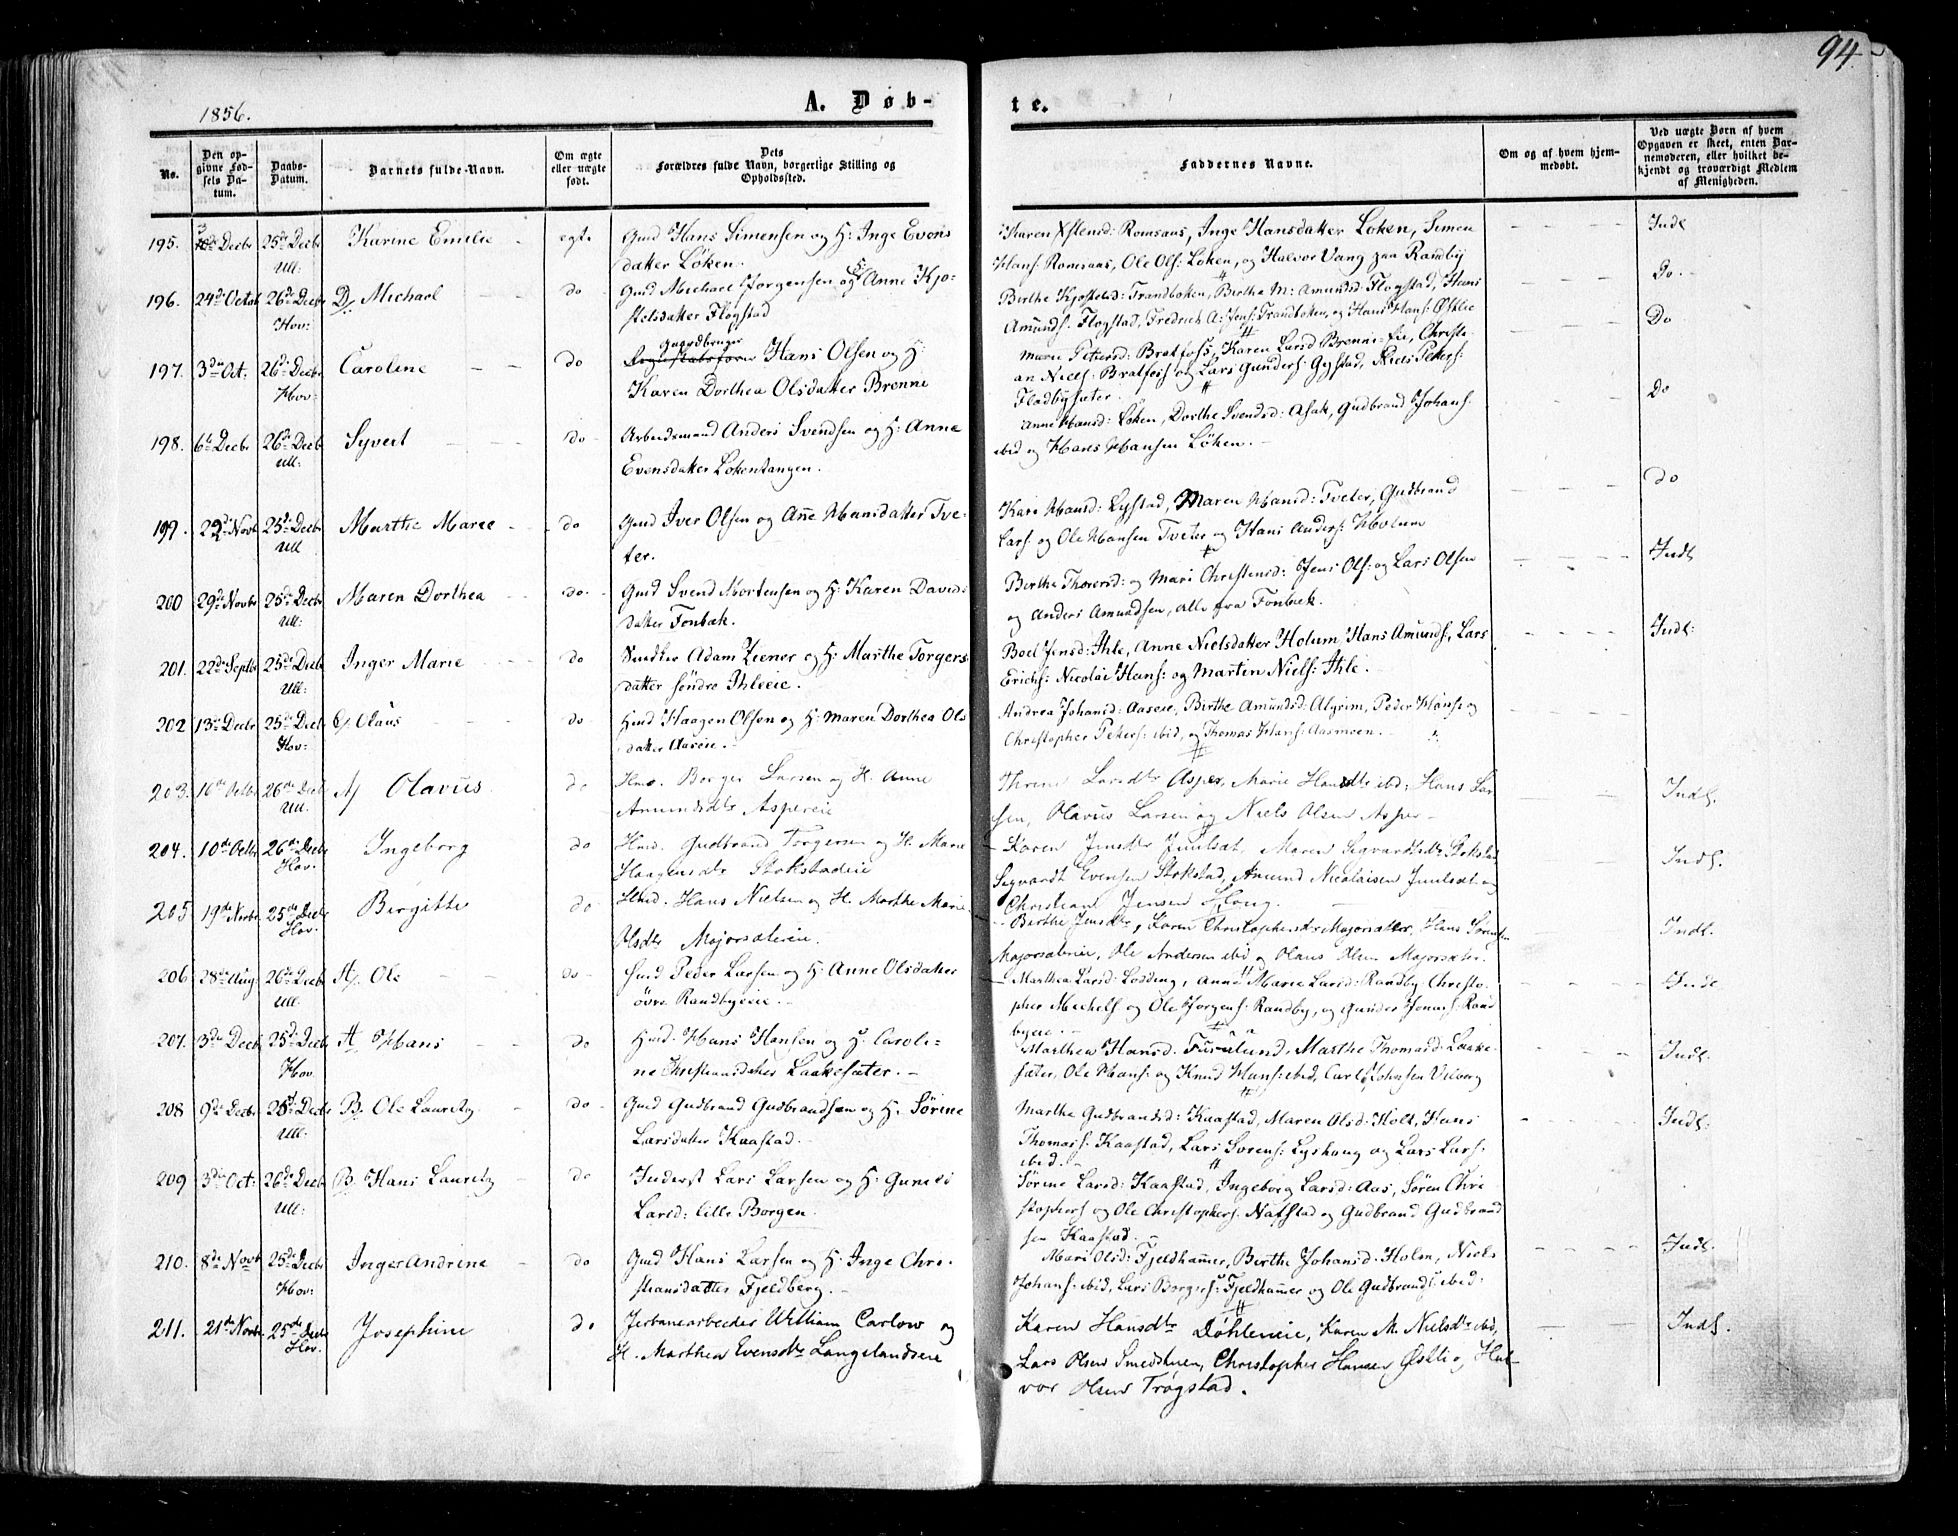 94
1856.
A. Døb-
te.
No.
Den op-
givne Fød-
sels Da-
tum.
Daabs-
Datum.
Barnets fulde Navn.
Om ægte
eller uægte
født.
Dets
Forældres fulde Navn, borgerlige Stilling og
Opholdssted.
Faddernes Navne.
Om og af hvem hjem-
medøbt.
Ved uægte Børn af hvem
Opgaven er skeet, enten Bar-
nemoderen, eller hvilket be-
kjendt og troværdigt Medlem
af Menigheden.
195. 3 Decbr 25de Decbr Karine Emilie egte Gmd Hans Simensen og H: Inge Evens
Ull: datter Løken.
Karen Romsaas, Inge Hansdatter Løken, Simen
Hans: Romsaas, Ole Ols: Løken, og Halvor Vang paa Randby
Indl
196. 24de Octob 26de Decbr Michael do Gmd Michael Jørgensen og H: Anne Kjø-
Hov: stelsdatter Flogstad
Birthe Kjøstelsd: Trandboken, Birthe M: Amundsd: Flogstad, Hans
Amunds: Flogstad, Fredrich A: Jens: Trandboken, og Hans Hans: Østlie
Do.
197. 3die Oct: 26de Decbr Caroline do Gaardbruger Hans Olsen og H:
Hov: Karen Dorthea Olsdatter Brenne
Maren Petersd: Bratfoss, Karen Larsd Brenni-Eie, Christi-
an Niels: Bratfoss og Lars Gunders: Gystad, Niels Peters:
Fladbysæter.
Do
198. 6te Decbr 26de Decb Syvert do Arbeidsmand Anders Svendsen og H: Anne
Ull: Evensdatter Løkentangen.
Anne Hansd: Løken, Dorthe Svendsd: Asak, Gudbrand Johans:
ibid og Hans Hansen Løken.
Do
199. 22de Novb 25de Decbr Marthe Maree do Gmd Iver Olsen og Anne Hansdatter Tve-
Ull ter.
Kari Hansd: Lystad, Maren Hansd: Tveter, Gudbrand
Lars: og Ole Hansen Tveter og Hans Anders: Holum
do
200 29de Novbr 25de Decbr Maren Dorthea do. Gmd Svend Mortensen og H: Karen Davids
Ull: datter Fonbæk.
Birthe Thoresd: og Mari Christensd: Jens Ols: og Lars Olsen
og Anders Amundsen, alle fra Fonbæk.
Indl
201. 22de Septbr 25de Decbr Inger Marie do Snedker Adam Ziener og H: Marthe Torgers
Ull: datter søndre Ihleeie.
Boel Jensd: Ihle, Anne Nielsdatter Holum Hans Amunds:, Lars
Erichs: Nicolai Hans: og Martin Niels: Ihle.
Indl:
202 13de Decbr 25de Decbr Olaus do Hmd Haagen Olsen og H: Maren Dorthea Ols
Hov: datter Aaseie.
Andrea Johansd: Aaseie, Birthe Amundsd: Algrim, Peder Hanse og
Christopher Peters: ibid, og Thomas Hans: Aasmoen.
203. 10de Octbr 26de Decb Olavus do Hmd. Borger Larsen og H. Anne
Ull. Amundsdtr Aspereie
Thrine Larsdtr Asper, Marie Hansdtr ibd: Hans Lar
sen, Olavus Larsen og Niels Olsen Asper
Indl.
204. 10de Octbr 26de Decbr Ingeborg do Hmd. Gudbrand Torgersen og H. Marie
Hov. Haagensdtr Stokstadeie
Karen Jensdtr Juulsæt, Maren Sigvardtsdtr Stokstad
Sigvardt Evensen Stokstad, Amund Nicolaisen Juulsæt og
Christian Jensen Houg.
Indl.
205 19de Novbr 25de Decbr Birgitte do Hmd. Hans Nielsen og H. Marthe Marie
Hov. Olsdtr Majorsætereie.
Birthe Jensdtr, Karen Christophersdtr Majorsæter, Hans Sørensen
Majorsætereie, Ole Andersen ibid og Olaus Olsen Majorsæter.
Indl.
206 28de Aug: 26de Decbr Ole do Hmd Peder Larsen og H: Anne Olsdatter
Ull øvre Randbyeie.
Marthea Larsd: Losding, Anne Marie Larsd: Randby Christo-
pher Michels og Ole Jørgens: Randby, og Gunder Jonas: Rand
byeie.
Indl
207. 3die Decbr 25de Decbr A Hans do Hmd. Hans Hansen og H: Caroli-
Hov ne Christiansdatter Laakesæter.
Marthea Hansd. Furulund, Marthe Thomasd. Laake-
sæter, Ole Hans: og Knud Hans: ibid, Carl Johnsen Vilberg
Indl:
208 9de Decbr 26de Decbr B Ole Lauritz do Gmd Gudbrand Gudbrandsen og H. Sørine
Ull: Larsdatter Kaastad.
Marthe Gudbrandsd: Kaastad, Maren Olsd: Holt, Hans
Thomas: Kaastad, Lars Sørens: Lyshaug og Lars Lars:
ibid.
Indl:
209 3die Oct: 26de Decbr B Hans Lauritz do Inderst Lars Larsen og H: Gunild
Ull: Larsd: lille Borgen.
Sørine Larsd: Kaastad, Ingeborg Larsd: Aas, Søren Chri
stophers og Ole Christophers. Nafstad og Gudbrand Gudbrand
sen Kaastad.
210. 8de Novb 25de Decbr Inger Andrine do Gmd Hans Larsen og H: Inge Chri-
Hov: stiansdatter Fjeldberg.
Mari Olsd: Fjeldhamer, Birthe Johansd: Holm, Niels
Johans: ibid, Lars Borgers: Fjeldhamer og Ole Gudbrands: ibid:
Indl.
211. 21de Novbr. 25de Decbr Josephine do Jerbanearbeider William Carlow og
Hov. H. Marthea Evensdtr Langelandseie
Karen Hansdtr Døhleneie, Karen M. Nielsdtr ibid,
Lars Olsen Smedstuen, Christopher Hansen Østli og Hal-
vor Olsen Trøgstad.
Indl.